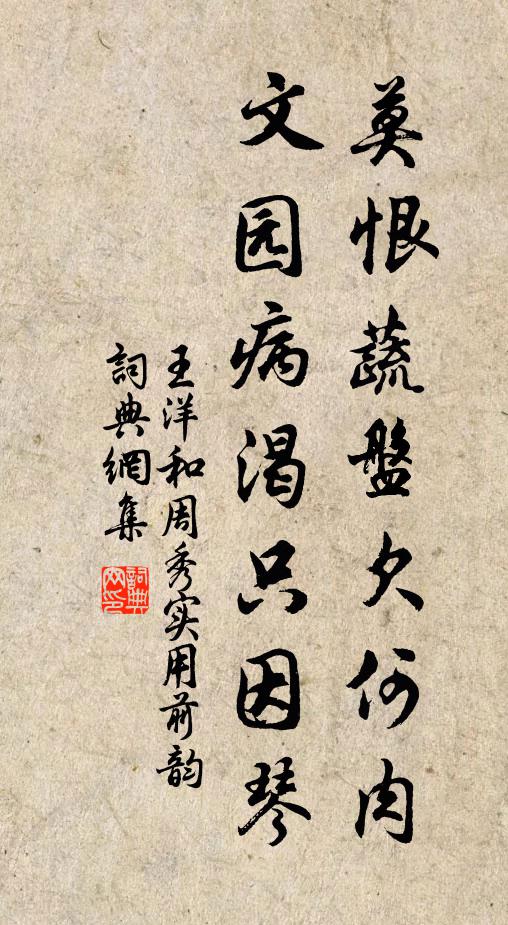 莫恨蔬盤欠何肉
文园病渴只因琴
王洋和周秀实用前韵
詞典網集
詞典网印